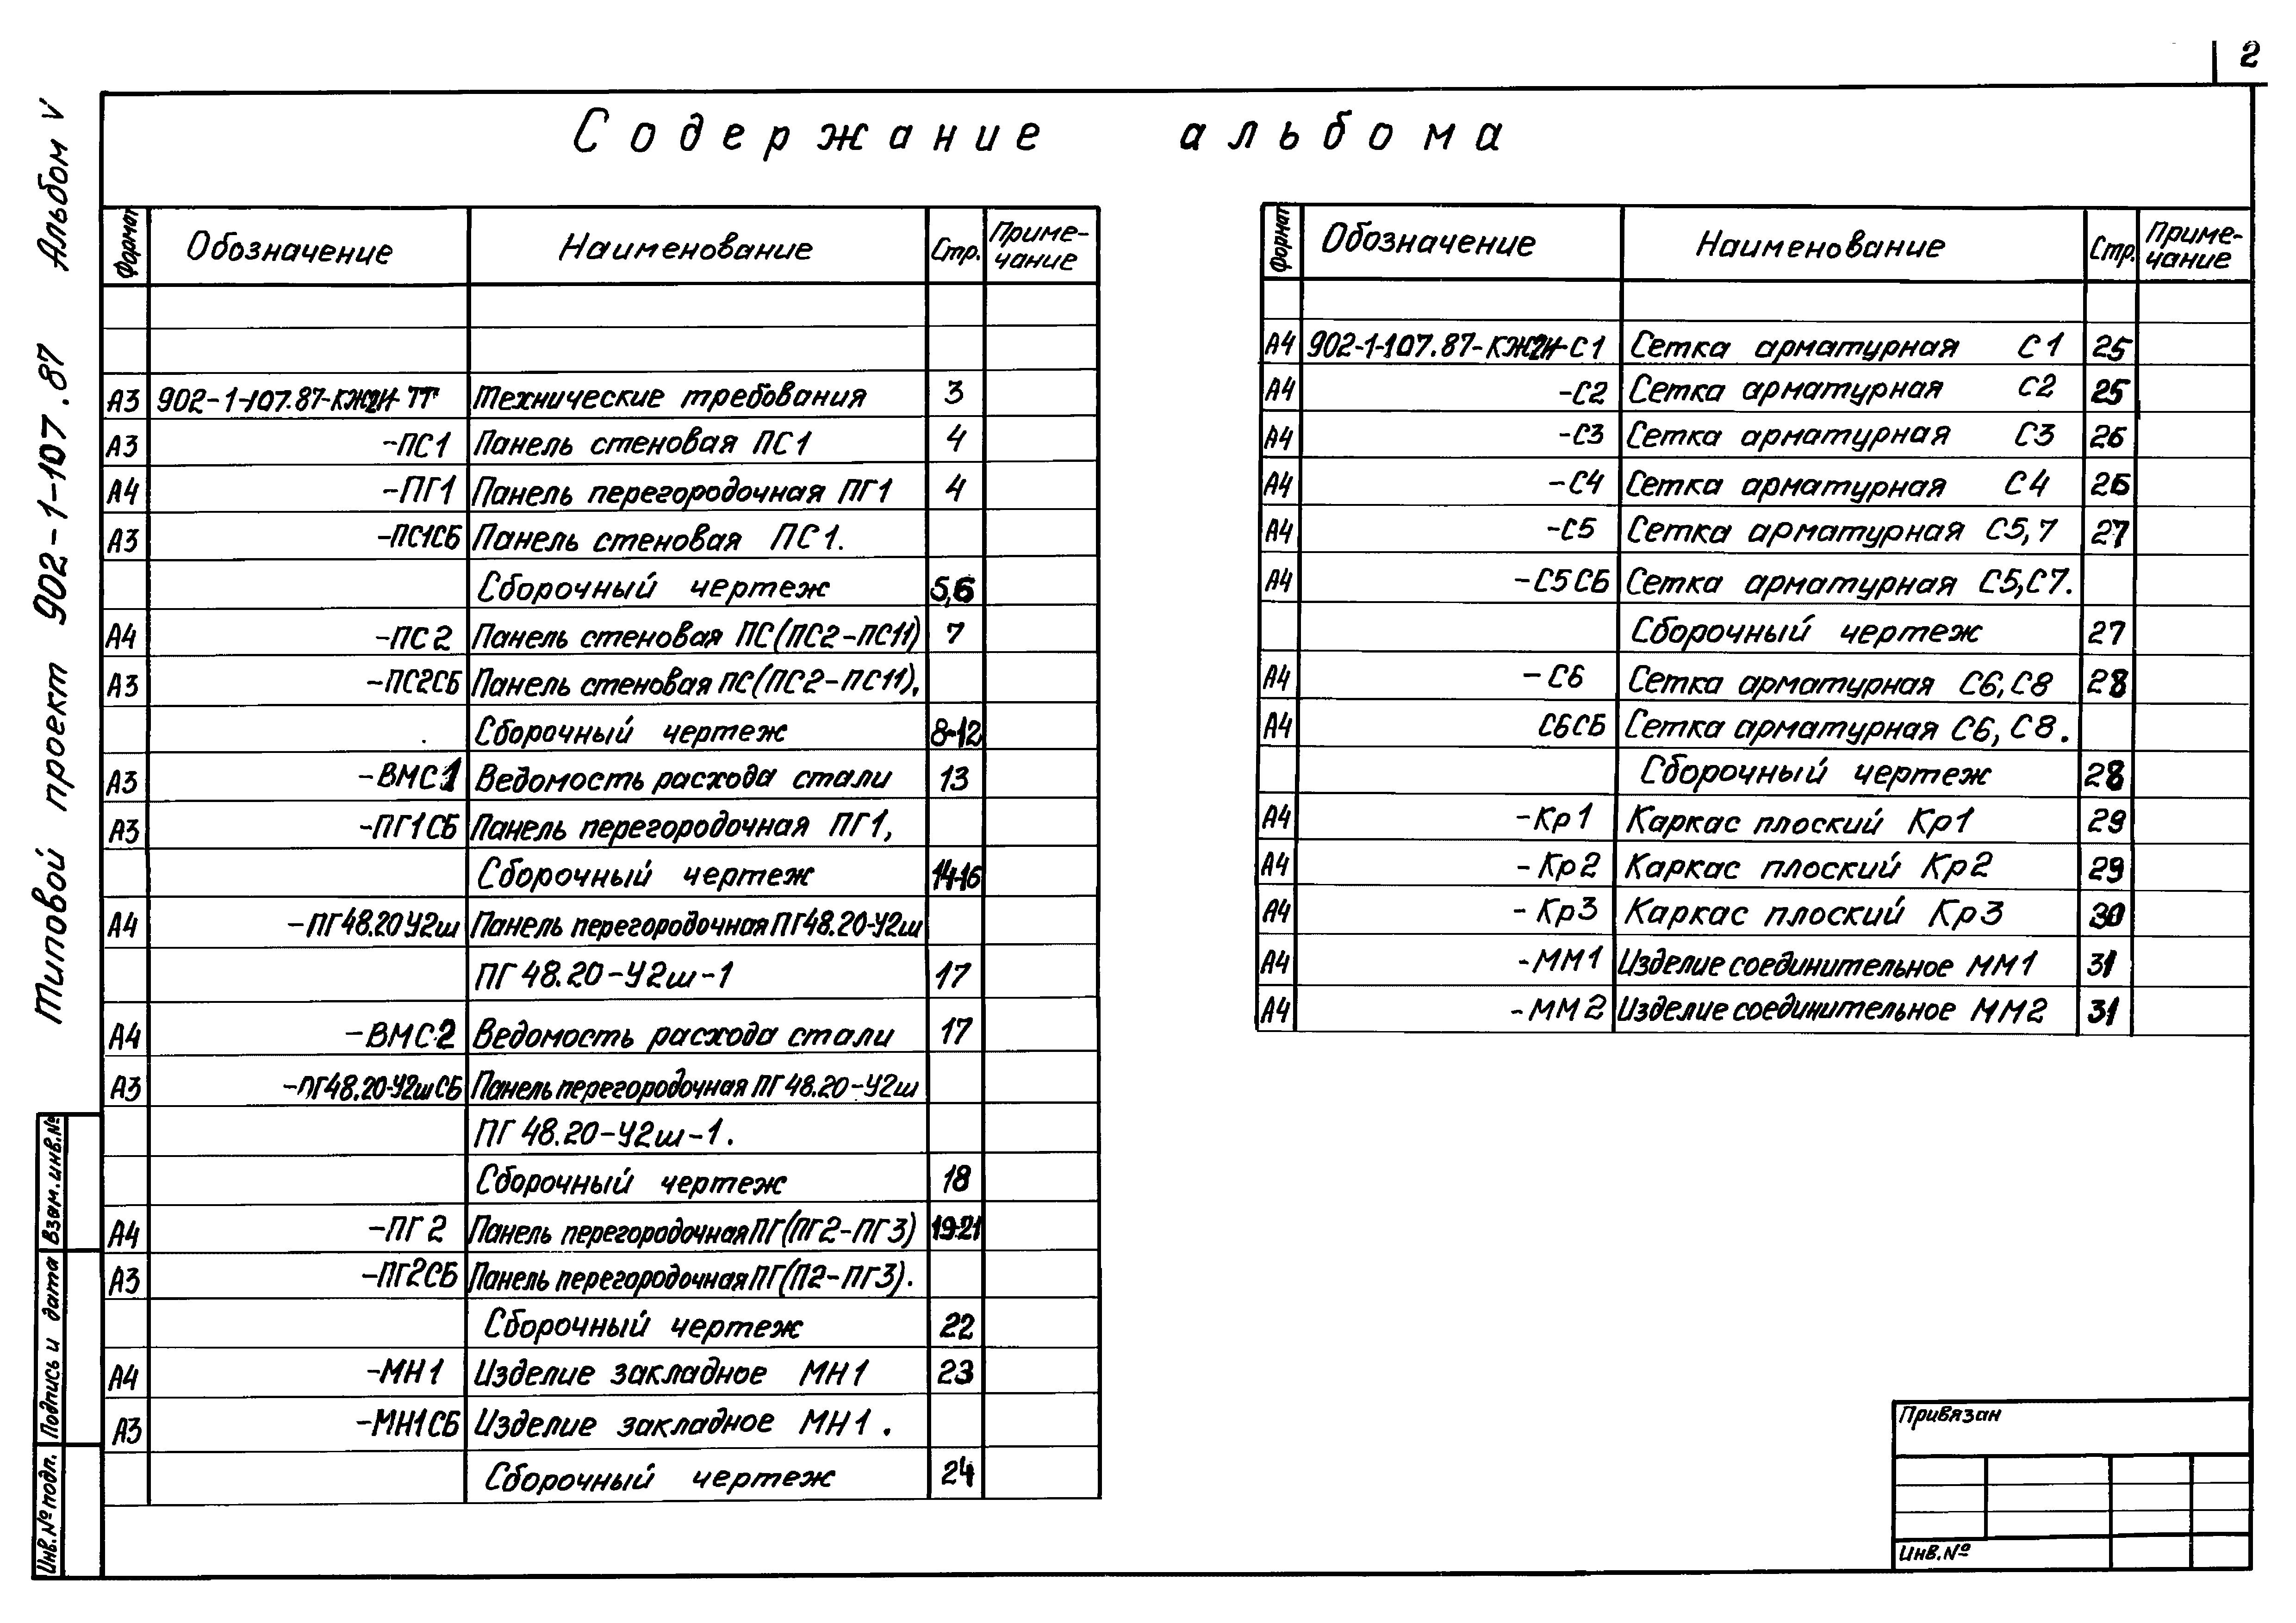 2
Содержание альбома
Типовой проект 902-1-107.87 Альбом V
Формат Обозначение Наименование Стр. Приме-
чание
А3 902-1-107.87-КЖ2И-ТТ Технические требования 3
А3 -ПС1 Панель стеновая ПС1 4
А4 -ПГ1 Панель перегородочная ПГ1 4
А3 -ПС1СБ Панель стеновая ПС1.
Сборочный чертеж 5,6
А4 -ПС2 Панель стеновая ПС(ПС2-ПС11) 7
А3 -ПС2СБ Панель стеновая ПС(ПС2-ПС11).
Сборочный чертеж 8-12
А3 -ВМС1 Ведомость расхода стали 13
А3 -ПГ1СБ Панель перегородочная ПГ1,
Сборочный чертеж 14-16
А4 -ПГ48.20У2ш Панель перегородочная ПГ48.20-У2ш
ПГ48.20-У2ш-1 17
А4 -ВМС2 Ведомость расхода стали 17
А3 -ПГ48.20-У2шСБ Панель перегородочная ПГ48.20-У2ш
ПГ48.20-У2ш-1.
Сборочный чертеж 18
А4 -ПГ2 Панель перегородочная ПГ(ПГ2-ПГ3) 19-21
А3 -ПГ2СБ Панель перегородочная ПГ(П2-ПГ3).
Сборочный чертеж 22
А4 -МН1 Изделие закладное МН1 23
А3 -МН1СБ Изделие закладное МН1.
Сборочный чертеж 24
Формат Обозначение Наименование Стр. Приме-
чание
А4 902-1-107.87-КЖ2И-С1 Сетка арматурная С1 25
А4 -С2 Сетка арматурная С2 25
А4 -С3 Сетка арматурная С3 26
А4 -С4 Сетка арматурная С4 26
А4 -С5 Сетка арматурная С5,7 27
А4 -С5СБ Сетка арматурная С5,С7.
Сборочный чертеж 27
А4 -С6 Сетка арматурная С6,С8 28
А4 С6СБ Сетка арматурная С6,С8.
Сборочный чертеж 28
А4 -Кр1 Каркас плоский Кр1 29
А4 -Кр2 Каркас плоский Кр2 29
А4 -Кр3 Каркас плоский Кр3 30
А4 -ММ1 Изделие соединительное ММ1 31
А4 -ММ2 Изделие соединительное ММ2 31
Инв.№ подп. Подпись и дата Взам.инв.№
Привязан
Инв.№